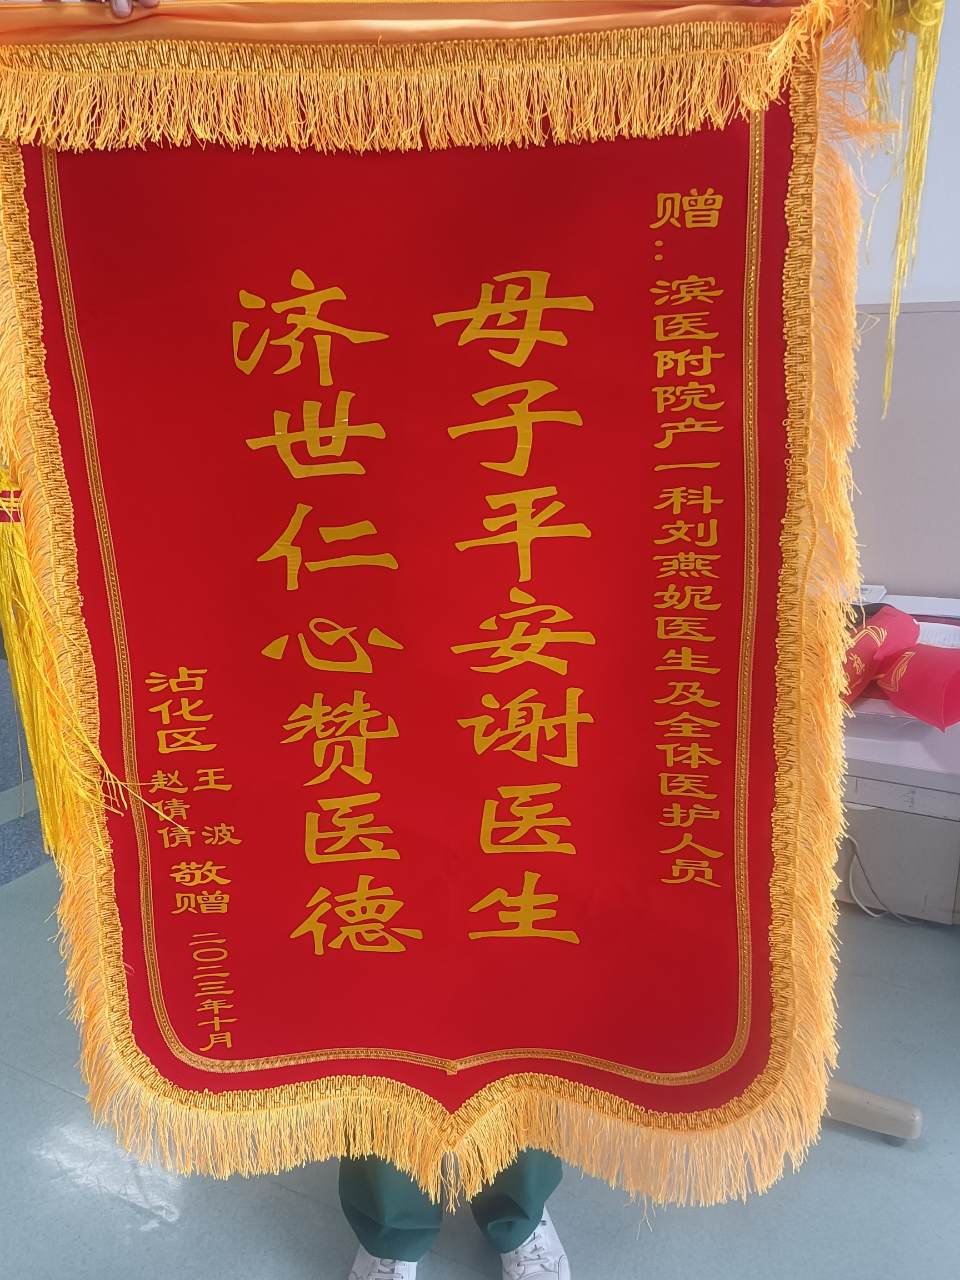 赠：滨医附院产一科刘燕妮医生及全体医护人员
母子平安谢医生
济世仁心赞医德
沾化区
王波
赵倩倩
敬赠
二〇二三年十月